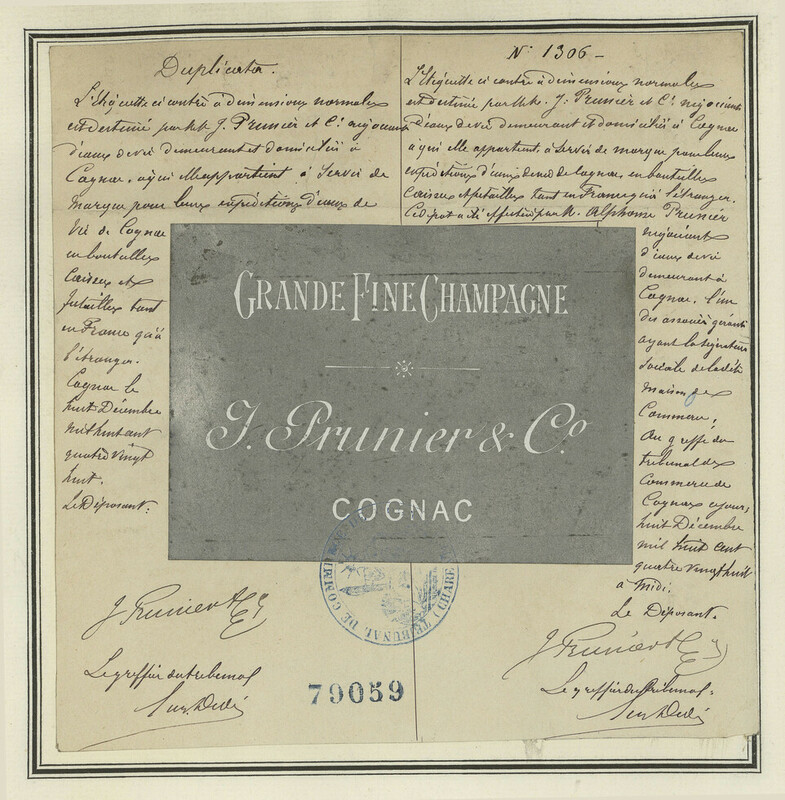 Duplicata.
L'étiquette ci contre à dimensions normales
est destiné par M.M. J. Prunier et Cie négociants
d'eaux de vie demeurant et domiciliés à
Cognac, à qui elle appartient à servir de
marque pour leurs expéditions d'eaux de
vie de Cognac
en bouteilles
Caisses et
futailles tant
en France qu'à
l'étranger.
Cognac le
huit Décembre
mil huit cent
quatre vingt
huit.
Le Déposant:
J Prunier & Cie
Le greffier du tribunal
N: 1306 -
L'étiquette ci contre à dimensions normales
est destiné par M.M. J. Prunier et Cie négociants
d'eaux de vie demeurant et domiciliés à Cognac
à qui elle appartient, à servir de marque pour leurs
expéditions d'eaux de vie de Cognac en bouteilles
Caisses et futailles tant en France qu'à l'étranger.
Ce dépôt a été effectué par M. Alphonse Prunier
négociant
d'eaux de vie
demeurant à
Cognac, l'un
des associés gérants
ayant la signature
sociale de la dite
maison de
Commerce,
Au greffe du
tribunal de
Commerce de
Cognac ce jour,
huit Décembre
mil huit cent
quatre vingt huit
à Midi.
Le Déposant.
J Prunier & Cie
Le greffier du tribunal:
GRANDE FINE CHAMPAGNE
J. Prunier & Co
COGNAC
TRIBUNAL DE COMMERCE
79059